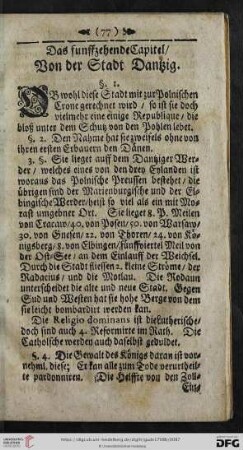 (77)
Das funffzehende Capitel/
Von der Stadt Dantzig.
§. 1.
OBwohl diese Stadt mit zur Polnischen
Crone gerechnet wird / so ist sie doch
vielmehr eine einige Republique / die
bloß unter dem Schutz von den Pohlen lebet.
§. 2. Den Nahme hat sie zweifels ohne von
ihren ersten Erbauern den Dänen.
3. §. Sie lieget auff dem Dantziger Wer-
der / welches eines von den drey Eylanden ist
woraus das Polnische Preussen bestehet / die
übrigen sind der Marienburgische und der El-
bingische Werder / heist so viel als ein mit Mo-
rast umgebner Ort. Sie lieget 8. P. Meilen
von Cracau / 40. von Posen / 50. von Warsau /
30. von Gnesen / 22. von Thoren / 24. von Kö-
nigsberg / 8. von Elbingen / fünff viertel Meil von
der Ost-See / an dem Einlauff der Weichsel.
Durch die Stadt fliessen 2. kleine Ströme / der
Radacius / und die Motlau. Die Rodaun
unterscheidet die alte und neue Stadt. Gegen
Sud und Westen hat sie hohe Berge von dem
sie leicht bombardirt werden kan.
Die Religio dominans ist die Lutherische /
doch sind auch 4. Reformirte im Rath. Die
Catholische werden auch daselbst geduldet.
§. 4. Die Gewalt des Königs daran ist vor-
nehml. diese; Er kan alle zum Tode verurtheil-
te pardonniren. Die Helffte von den Zoll-
Ein-